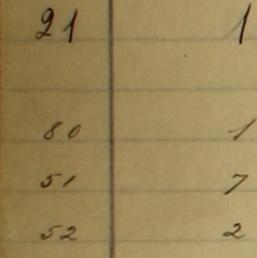 21 1
80 1
51 7
52 2